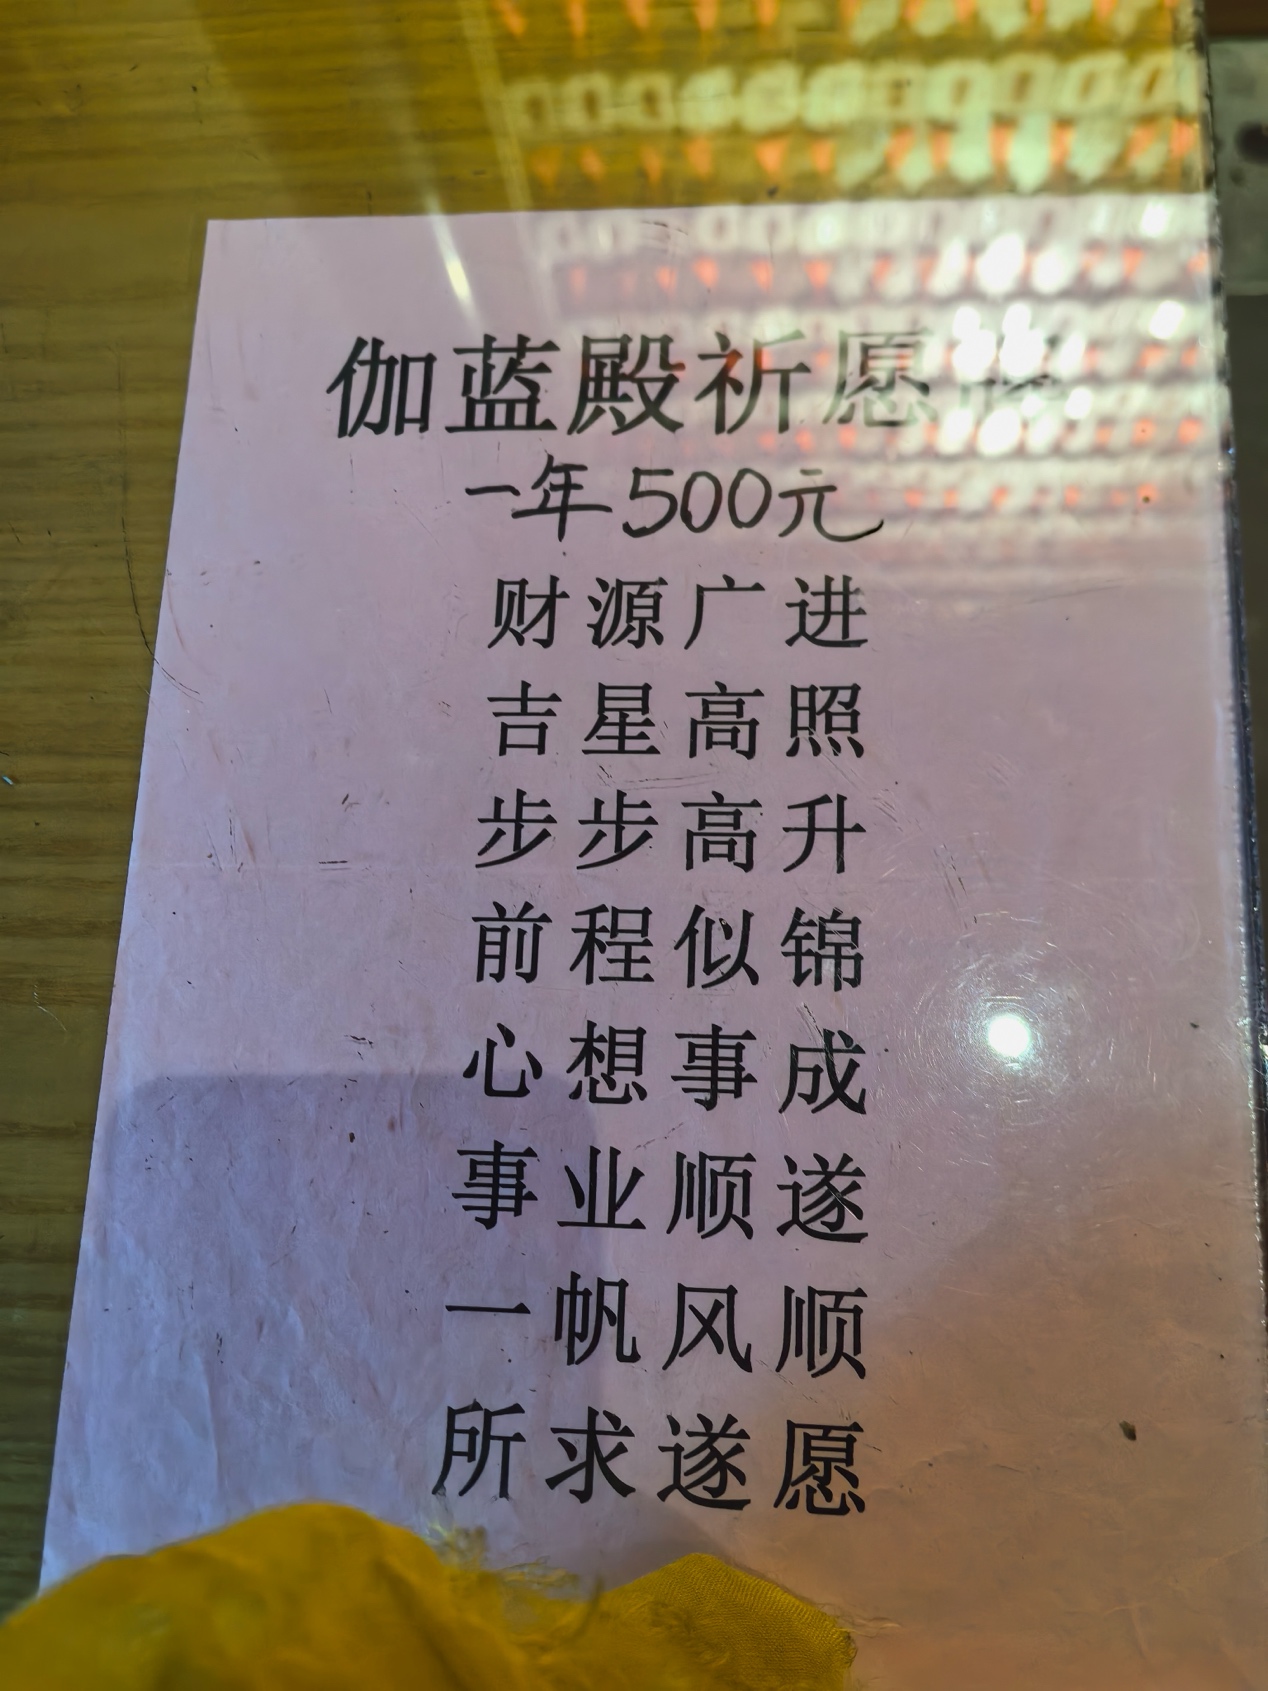 伽蓝殿祈愿牌
一年500元
财源广进
吉星高照
步步高升
前程似锦
心想事成
事业顺遂
一帆风顺
所求遂愿